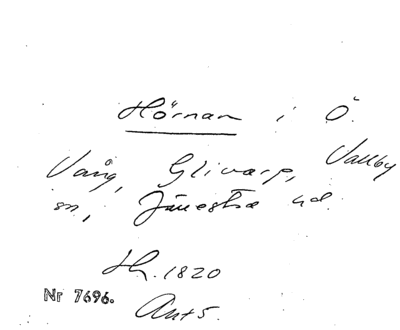 Hörnan i Ö.
Vång, Glivarp, Vallby
sn, Järrestad hd.
Hh. 1820
Nr 7696.
Ant 5.